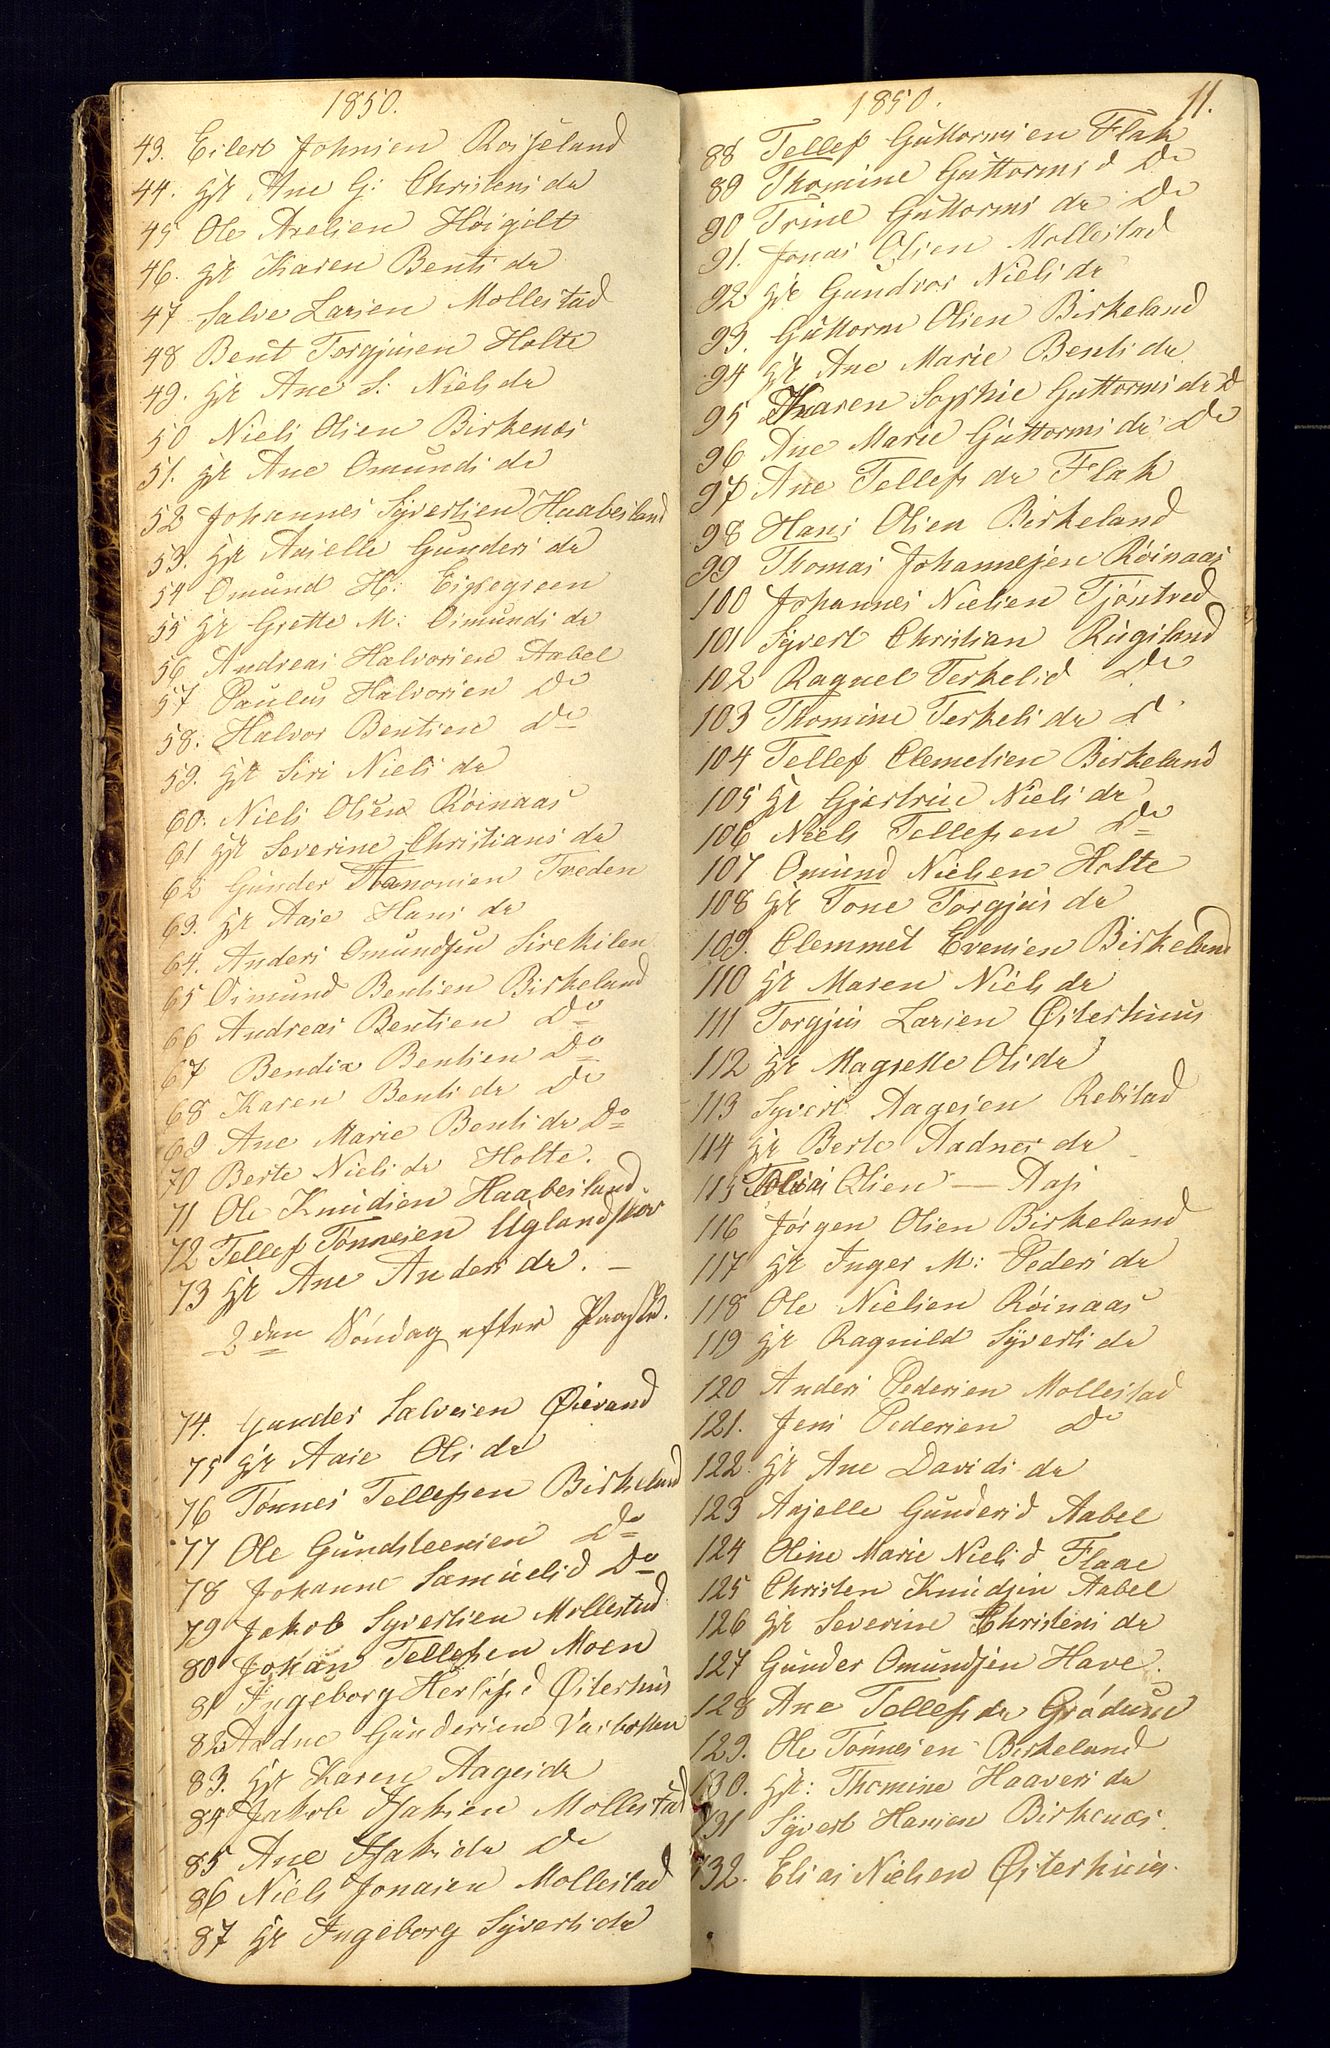 1850.
43. Eilert Johnsen Roiseland
44. Hr Ane G: Christens dr
45 Ole Axelsen Høigilt
46. Hr Karen Bents dr
47 Salve Larsen Mollestad
48 Bent Torgjusen Holte
49. Hr Ane S: Niels dr
50 Niels Olsen Birkenæs
51. Hr Ane Omunds dr
52 Johannes Syvertsen Haabesland
53. Hr Asielle Gunders dr
54 Omund H: Eppegreen
55 Hr Grette M: Osmunds dr
56 Andreas Halvorsen Aabel
57 Paulus Halvorsen Do
58. Halvor Bentsen Do
59. Hr Siri Niels dr
60. Niels Olsen Røinaas
61 Hr Severine Christians dr
62 Gunder Aanonsen Treden
63. Hr Aase Hans dr
64. Anders Omundsen Sirekilen
65 Osmund Bentsen Birkeland
66 Andreas Bentsen Do
67 Bendix Bentsen Do
68 Karen Bents dr Do
69 Ane Marie Bents dr Do
70 Berte Niels dr Holte.
71 Ole Knudsen Haabesland.
72 Tellef Tønnesen Uglandskor
73 Hr Ane Anders dr. —
2den Søndag efter Paaske.
74. Gunder Salvesen Øievand
75 Hr Aase Ols dr
76 Tønnes Tellefsen Birkeland
77 Ole Gundsteensen Do
78 Johanne Samuelsd Do
79 Jakob Syvertsen Mollestad
80 Johan Tellefsen Moen
81 Ingeborg Herlofsd Østerhus
82 Aadne Gundersen Vatbotten
83. Hr Karen Aagesdr
84 Jakob Isaksen Mollestad
85 Ane Isaksdr Do
86 Niels Jonasen Mollestad
87 Hr Ingeborg Syverts dr
1850. 11.
88 Tellef Guttormsen Flak
89 Thomine Guttorms d Do
90 Trine Guttorms dr Do
91. Jonas Olsen Mollestad
92 Hr Gundvor Niels dr
93. Guttorm Olsen Birkeland
94 Hr Ane Marie Bents dr
95 Karen Sophie Guttorms dr D
96 Ane Marie Guttorms dr Do
97 Ane Tellefs dr Flak
98 Hans Olsen Birkeland
99 Thomas Johannesen Røinaas
100 Johannes Nielsen Tjøntved
101 Syvert Christian Rugsland
102 Ragnel Terkelsd Do
103 Thomine Terkels dr D
104 Tellef Clemetsen Birkeland
105 Hr Gjertrine Niels dr
106 Niels Tellefsen Do
107 Omund Nielsen Holte
108 Hr Tone Torgjus dr
109. Clemmet Evensen Birkeland
110 Hr Maren Niels dr
111 Torgjus Larsen Østerhuus
112 Hr Magrette Olsdr
113 Syvert Aagesen Rebstad
114 Hr Berte Aadnes dr
115 Tobias Olsen — Aas
116 Jørgen Olsen Birkeland
117 Hr Inger M: Peders dr
118 Ole Nielsen Røinaas
119 Hr Ragnild Syverts dr
120 Anders Pedersen Mollestad
121. Jens Pedersen Do
122 Hr Ane Davids dr
123 Asjelle Gundersd Aabel
124 Oline Marie Niels d Flaae
125 Christen Knudsen Aabel
126 Hr Severine Christens dr
127 Gunder Omundsen Have.
128 Ane Tellefs dr Grødum
129. Ole Tønnesen Birkeland
130. Hr: Thomine Haavers dr
131 Syvert Hansen Birkenæs.
132. Elias Nielsen Østerhuus.